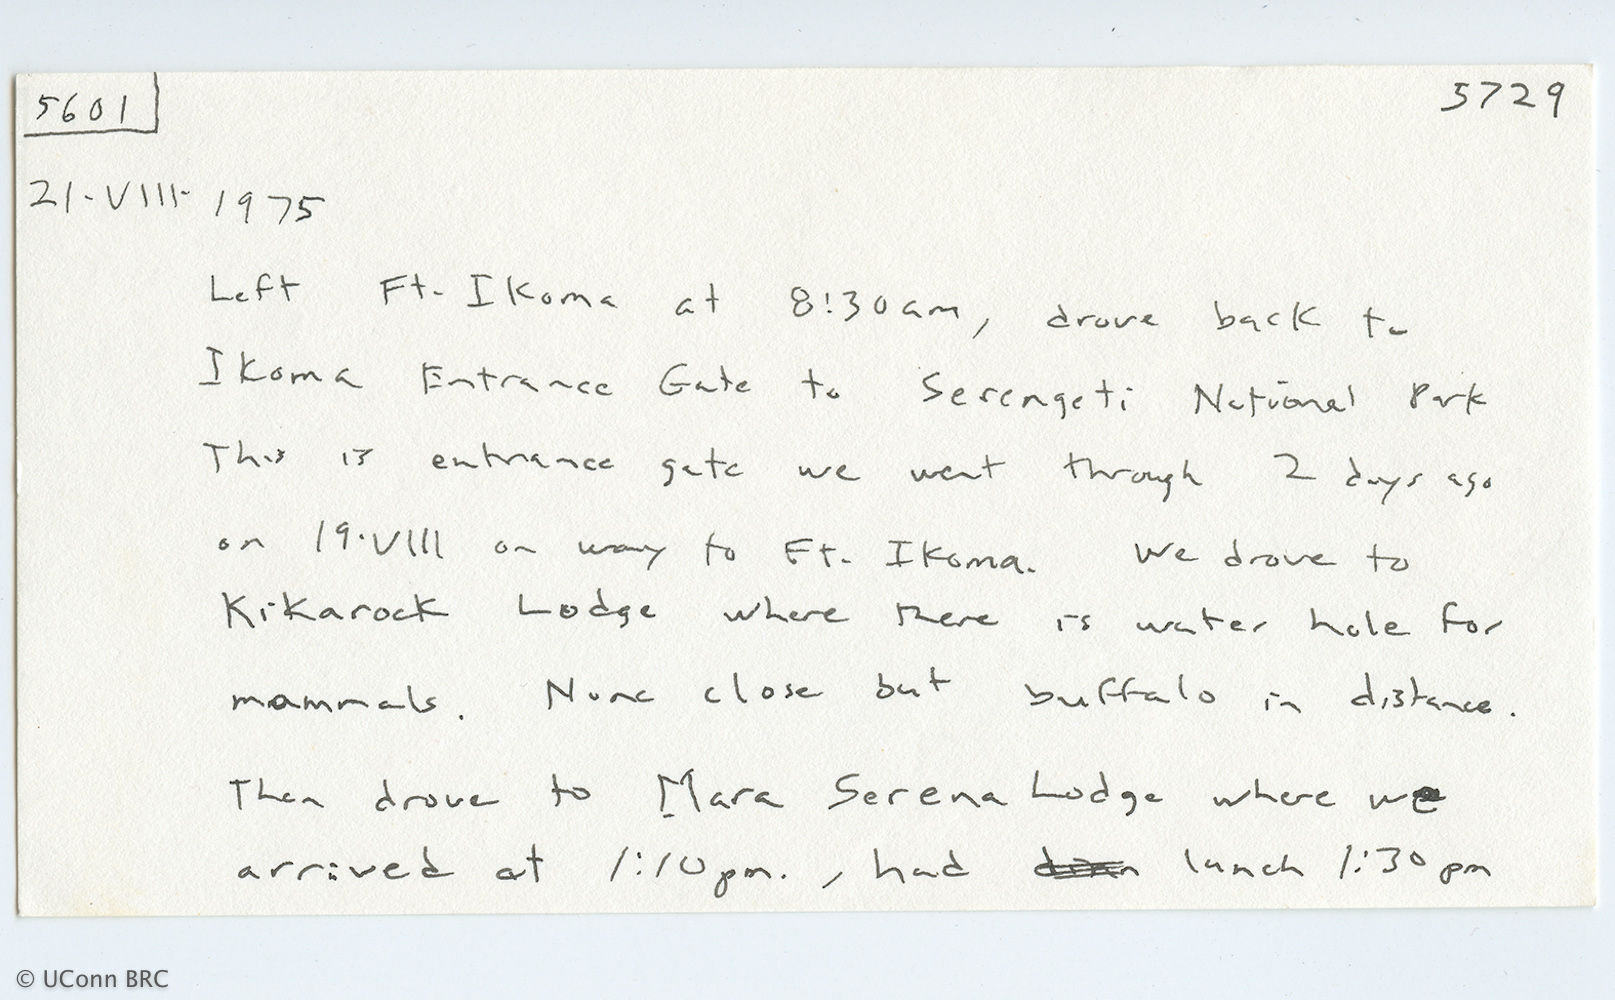 5601
5729
21-VIII-1975
Left Ft. Ikoma at 8:30am, drove back to
Ikoma Entrance Gate to Serengeti National Park
This is entrance gate we went through 2 days ago
on 19.VIII on way to Ft. Ikoma. We drove to
Kikarock Lodge where there is water hole for
mammals. None close but buffalo in distance.
Then drove to Mara Serena Lodge where we
arrived at 1:10pm., had lunch 1:30pm
© UConn BRC